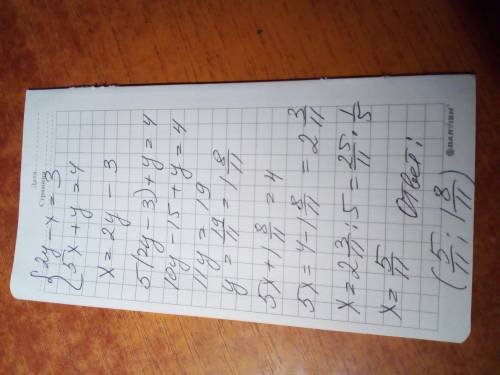 Дата
Страница
{2y - x = 3
5x + y = 4
x = 2y - 3
5(2y - 3) + y = 4
10y - 15 + y = 4
11y = 19
y = 19/11 = 1 8/11
5x + 1 8/11 = 4
5x = 4 - 1 8/11 = 2 3/11
x = 2 3/11 : 5 = 25/11 · 1/5
x = 5/11 Ответ:
(5/11 ; 1 8/11)
DARVISH